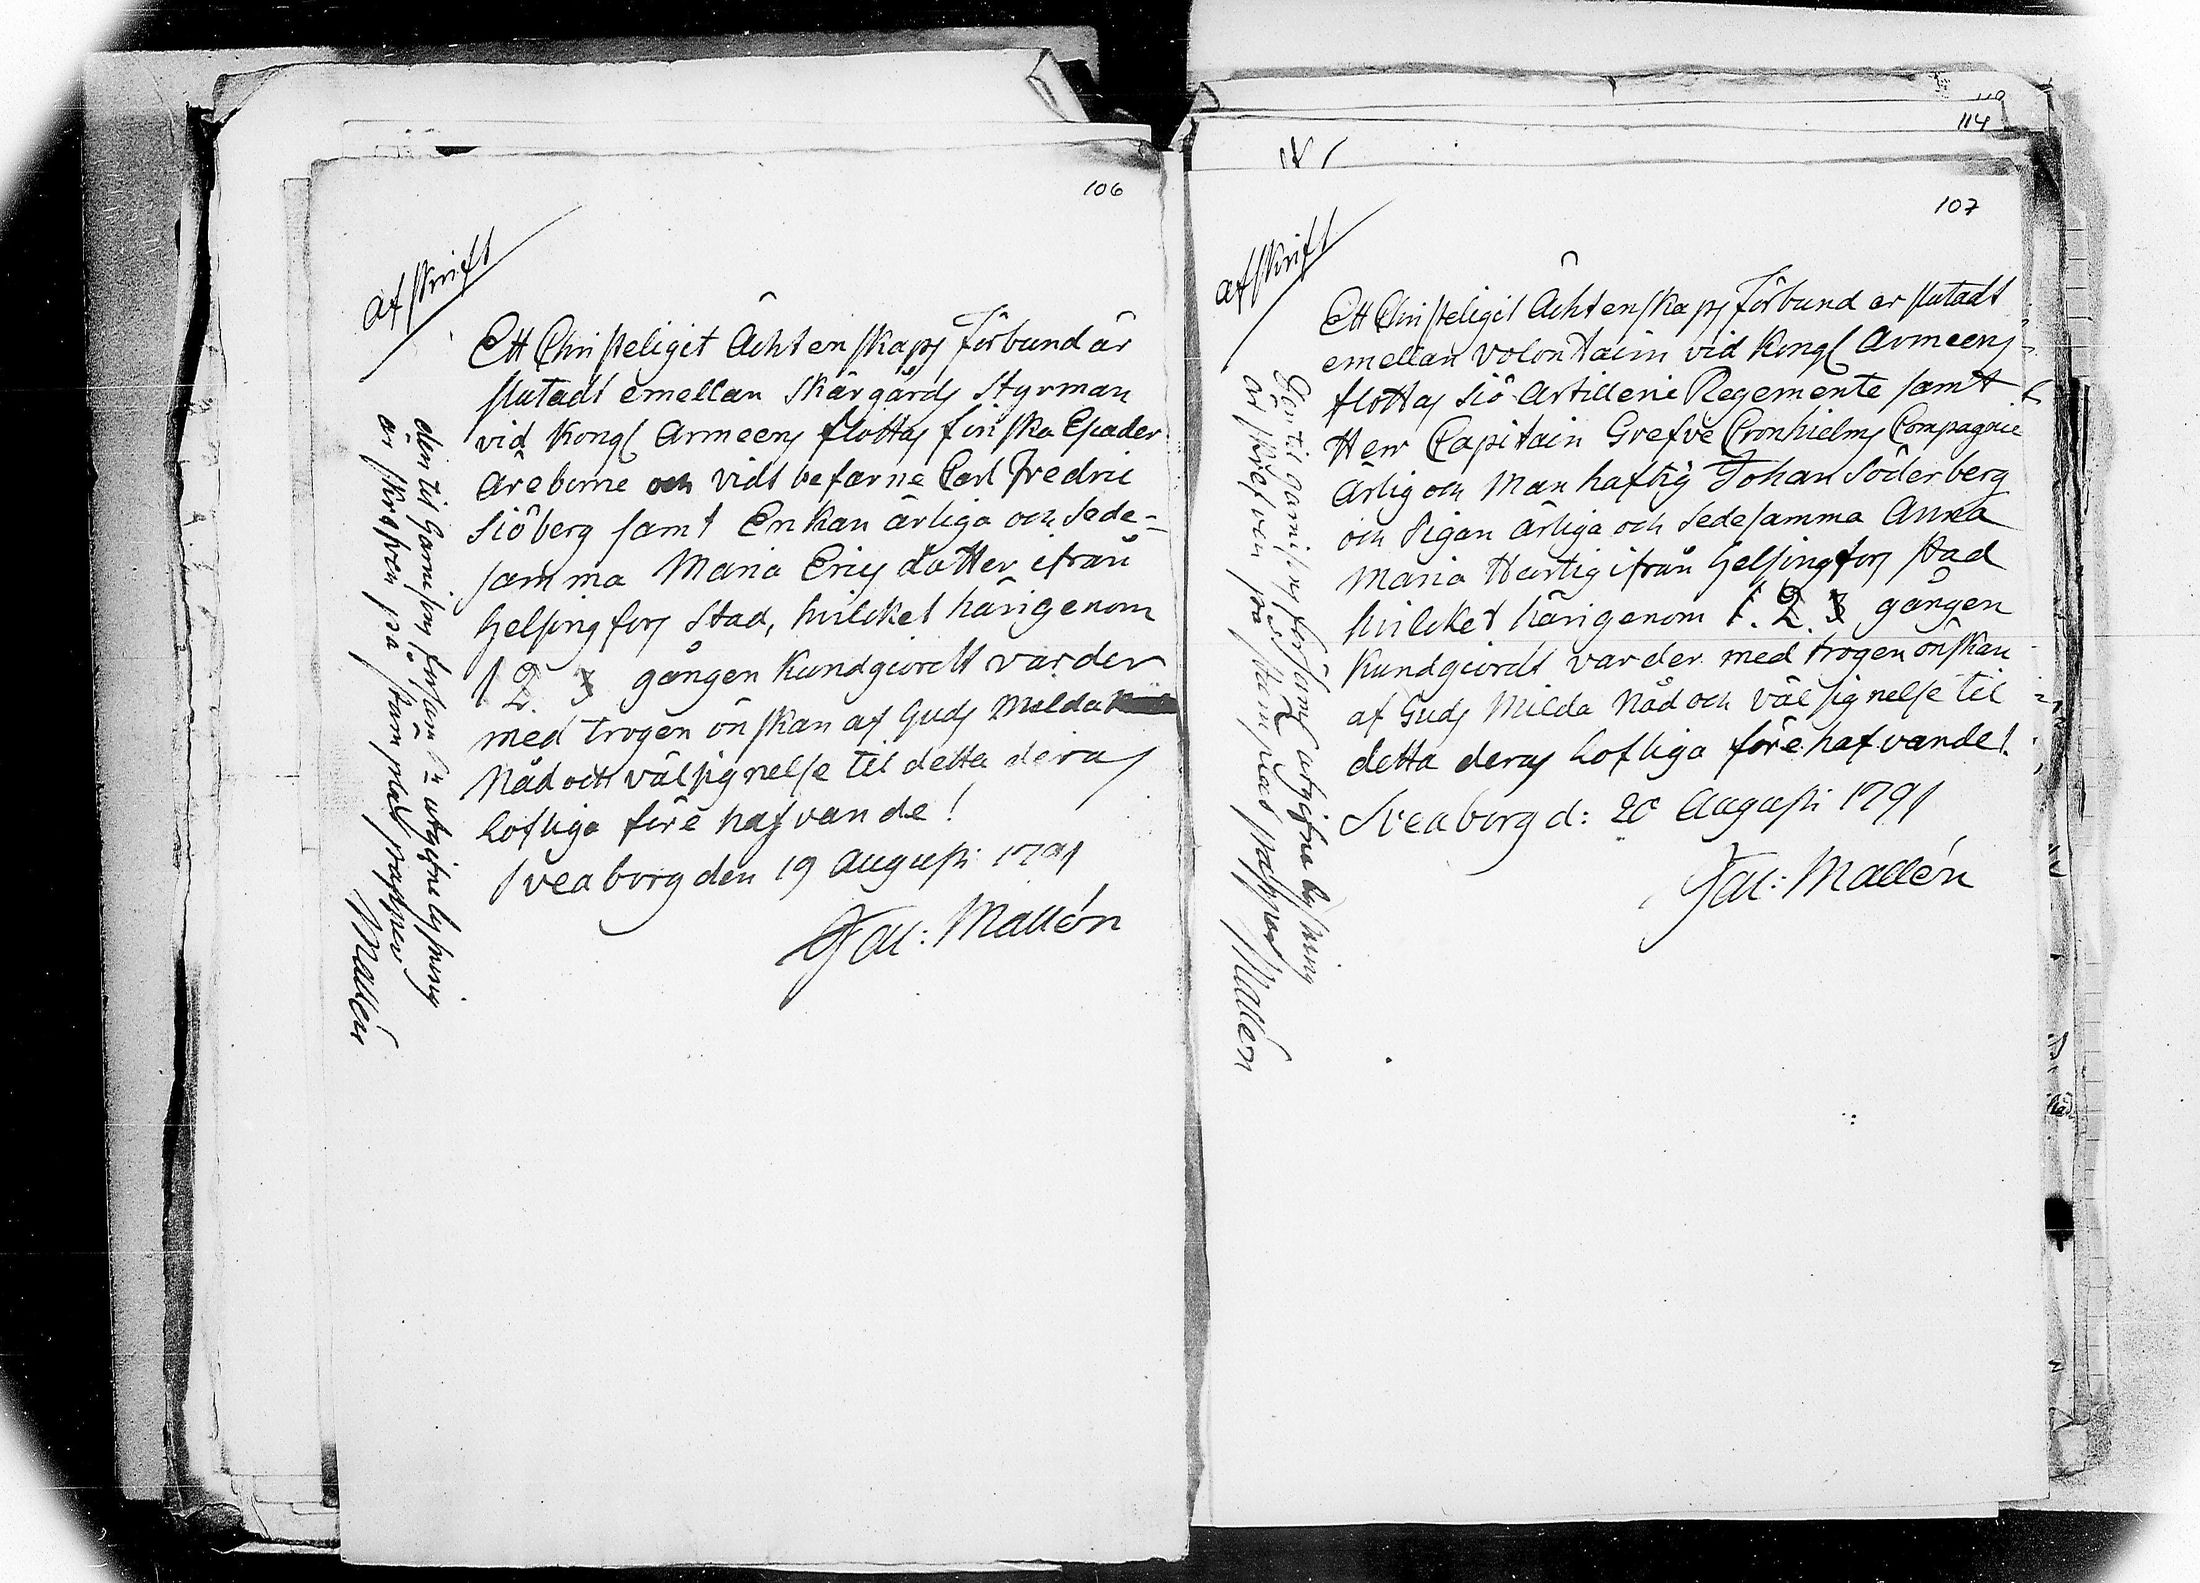 106
afskrift
Ett Christeligit Ächtenskaps förbund är
slutadt emellan Skärgårds Styrman
vid Kongl Armeens flottas finska Escader
Äreborne och vidt befarne Carl Fredric
Siöberg samt Enkan ärliga och Sede-
samma Maria Erics dotter ifrån
Helsingfors Stad, hvilcket härigenom
1 2. 3 gången Kundgiordt varder
med trogen önskan af Guds Milda
Nåd och välsignelse til detta deras
lofliga förehafvande!
Sveaborg den 19 Augusti 1791
Jac: Mallén
den til Garnisons församl: utgifne lysning
är skrefven på stämplad papper
Mallén
110
114
107
afskrift
Ett Christeligit Ächtenskaps förbund är slutadt
emellan Volontairn vid Kongl Armeens
flottas Siö Artillerie Regemente samt
Herr Capitain Grefve Cronhielms Compagnie
Ärlig och Manhaftig Johan Söderberg
och Pigan ärliga och Sedesamma Anna
Maria Hartig ifrån Helsingfors stad
hvilcket härigenom 1. 2. 3 gången
Kundgiordt varder med trogen önskan
af Guds Milda Nåd och välsignelse til
detta deras lofliga förehafvande!
Sveaborg d: 20 Augusti 1791
Jac: Mallén
Den til garnisons församl utgifna lysning
är skrefven på stämplad papper Mallén